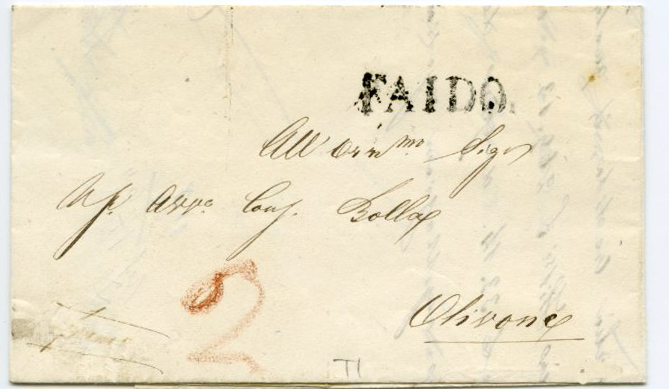 FAIDO.
All' Orn.mo Sigr
Avvo. Conf. Bolla
Olivone
2
TI